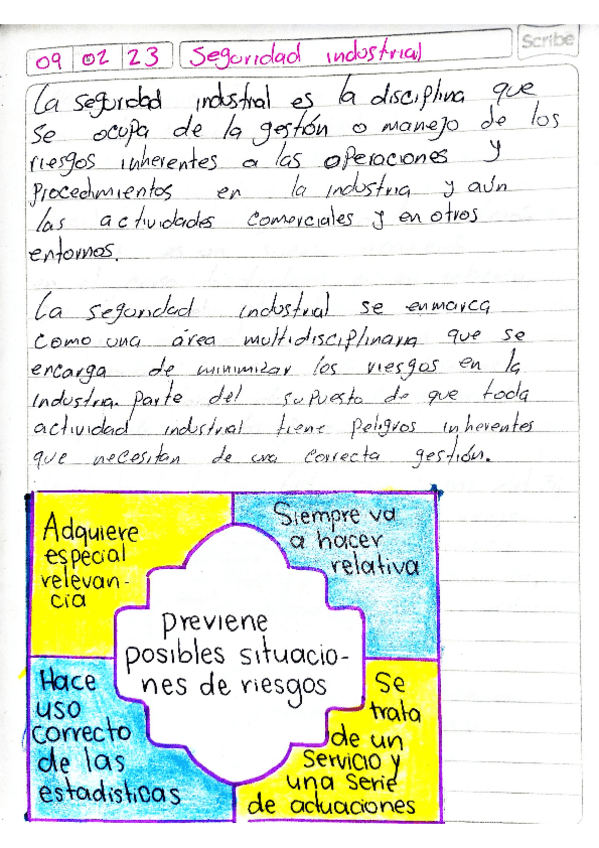 Scribe
09 02 23 Seguridad industrial
La seguridad industrial es la disciplina que
se ocupa de la gestión o manejo de los
riesgos inherentes a las operaciones y
procedimientos en la industria y aún
las actividades comerciales y en otros
entornos.
La seguridad industrial se enmarca
como una área multidisciplinaria que se
encarga de minimizar los riesgos en la
industria. Parte del supuesto de que toda
actividad industrial tiene peligros inherentes
que necesitan de una correcta gestión.
Adquiere
especial
relevan-
cia
Siempre va
a hacer
relativa
previene
posibles situacio-
nes de riesgos
Hace
uso
correcto
de las
estadisticas
Se
trata
de un
servicio y
una serie
de actuaciones